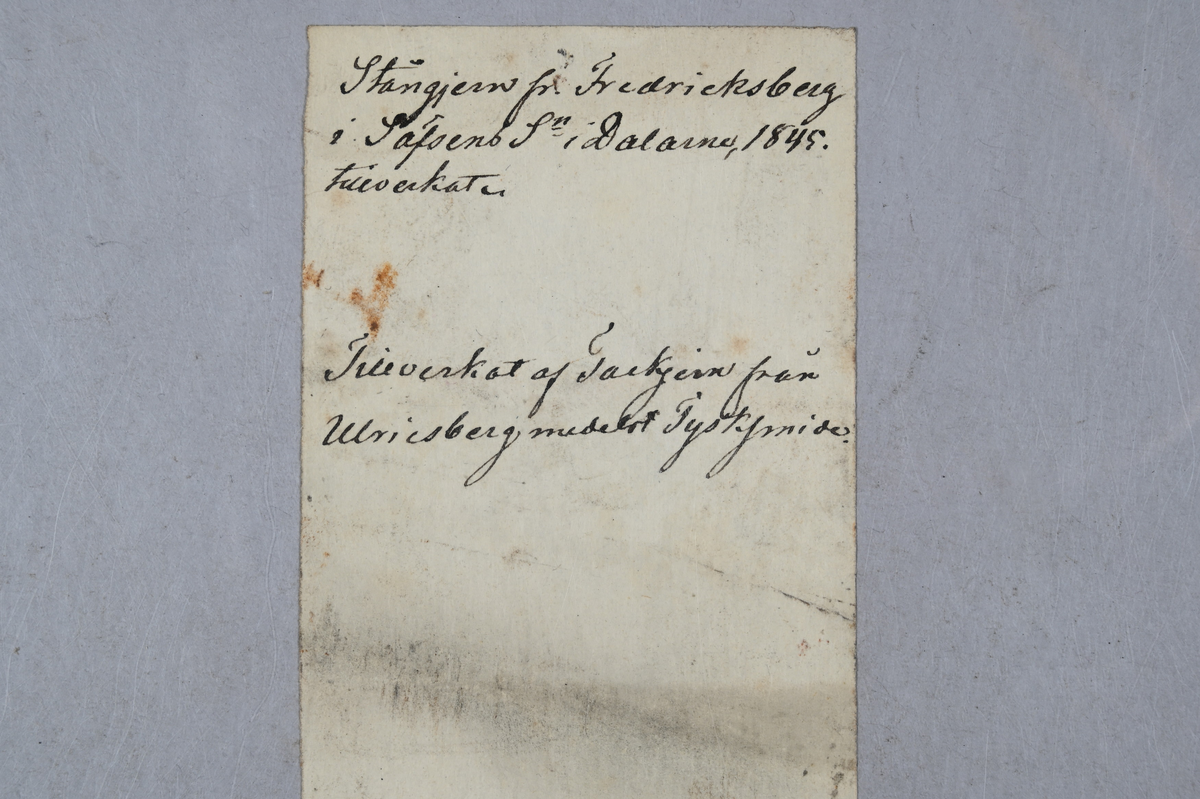 Stångjern fr. Fredricksberg
i Säfsens Sn i Dalarne, 1845.
tillverkat.
Tillverkat af Tackjern från
Ulricsberg medelst Tysksmide.